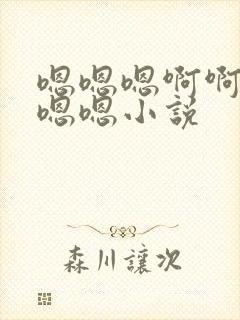 嗯嗯嗯啊啊
嗯嗯小説
森川讓次